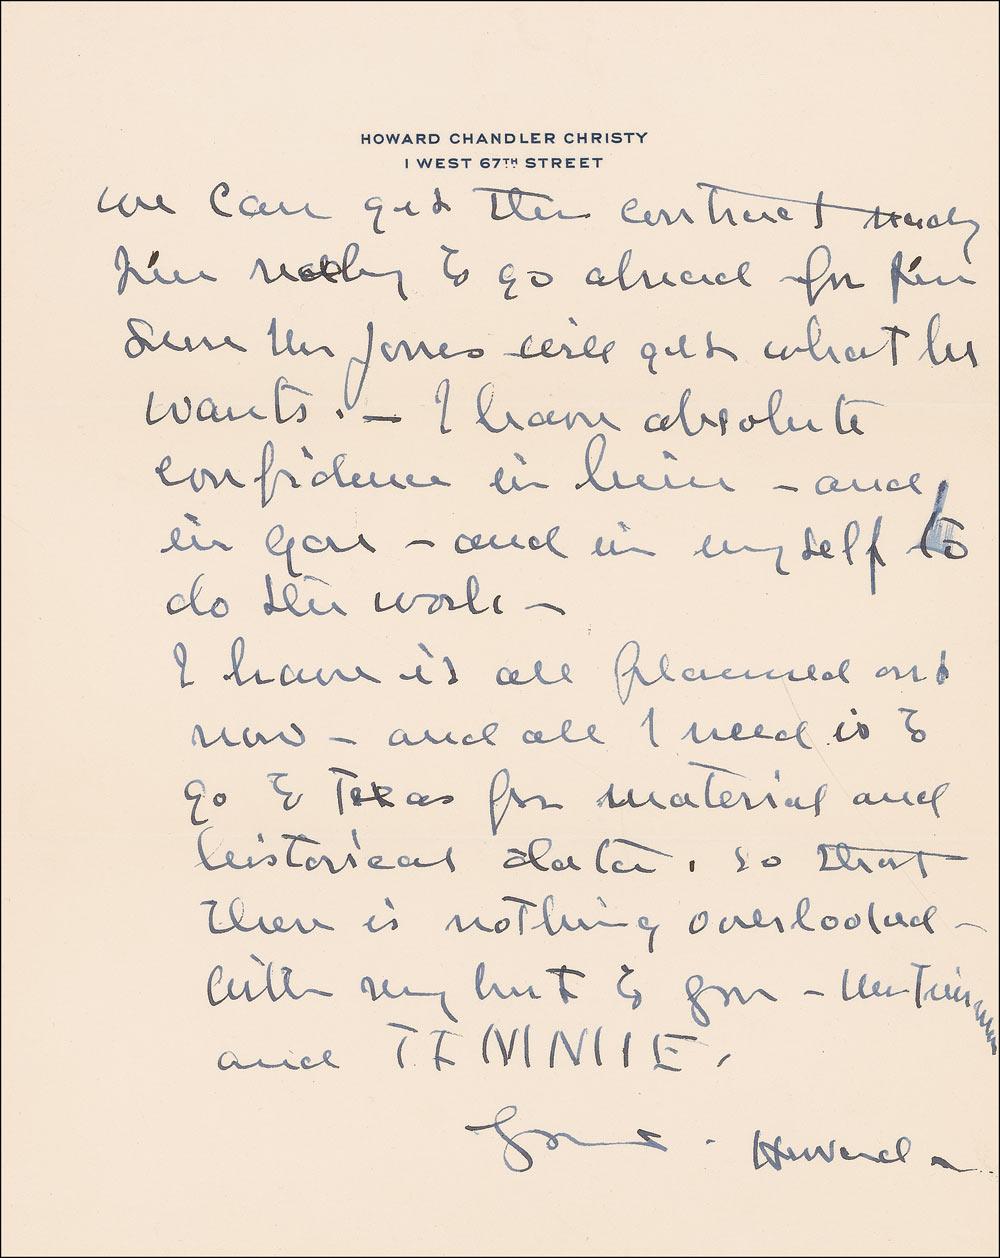 HOWARD CHANDLER CHRISTY
1 WEST 67TH STREET
we can get the contract ready
I'm ready to go ahead for I'm
sure Mr Jones will get what he
wants. — I have absolute
confidence in him - and
in you - and in myself to
do the work -
I have it all planned out
now - and all I need is to
go to Texas for material and
historical data. so that
there is nothing overlooked -
with my best to you -
and TENNNIE.
Yours - Howard